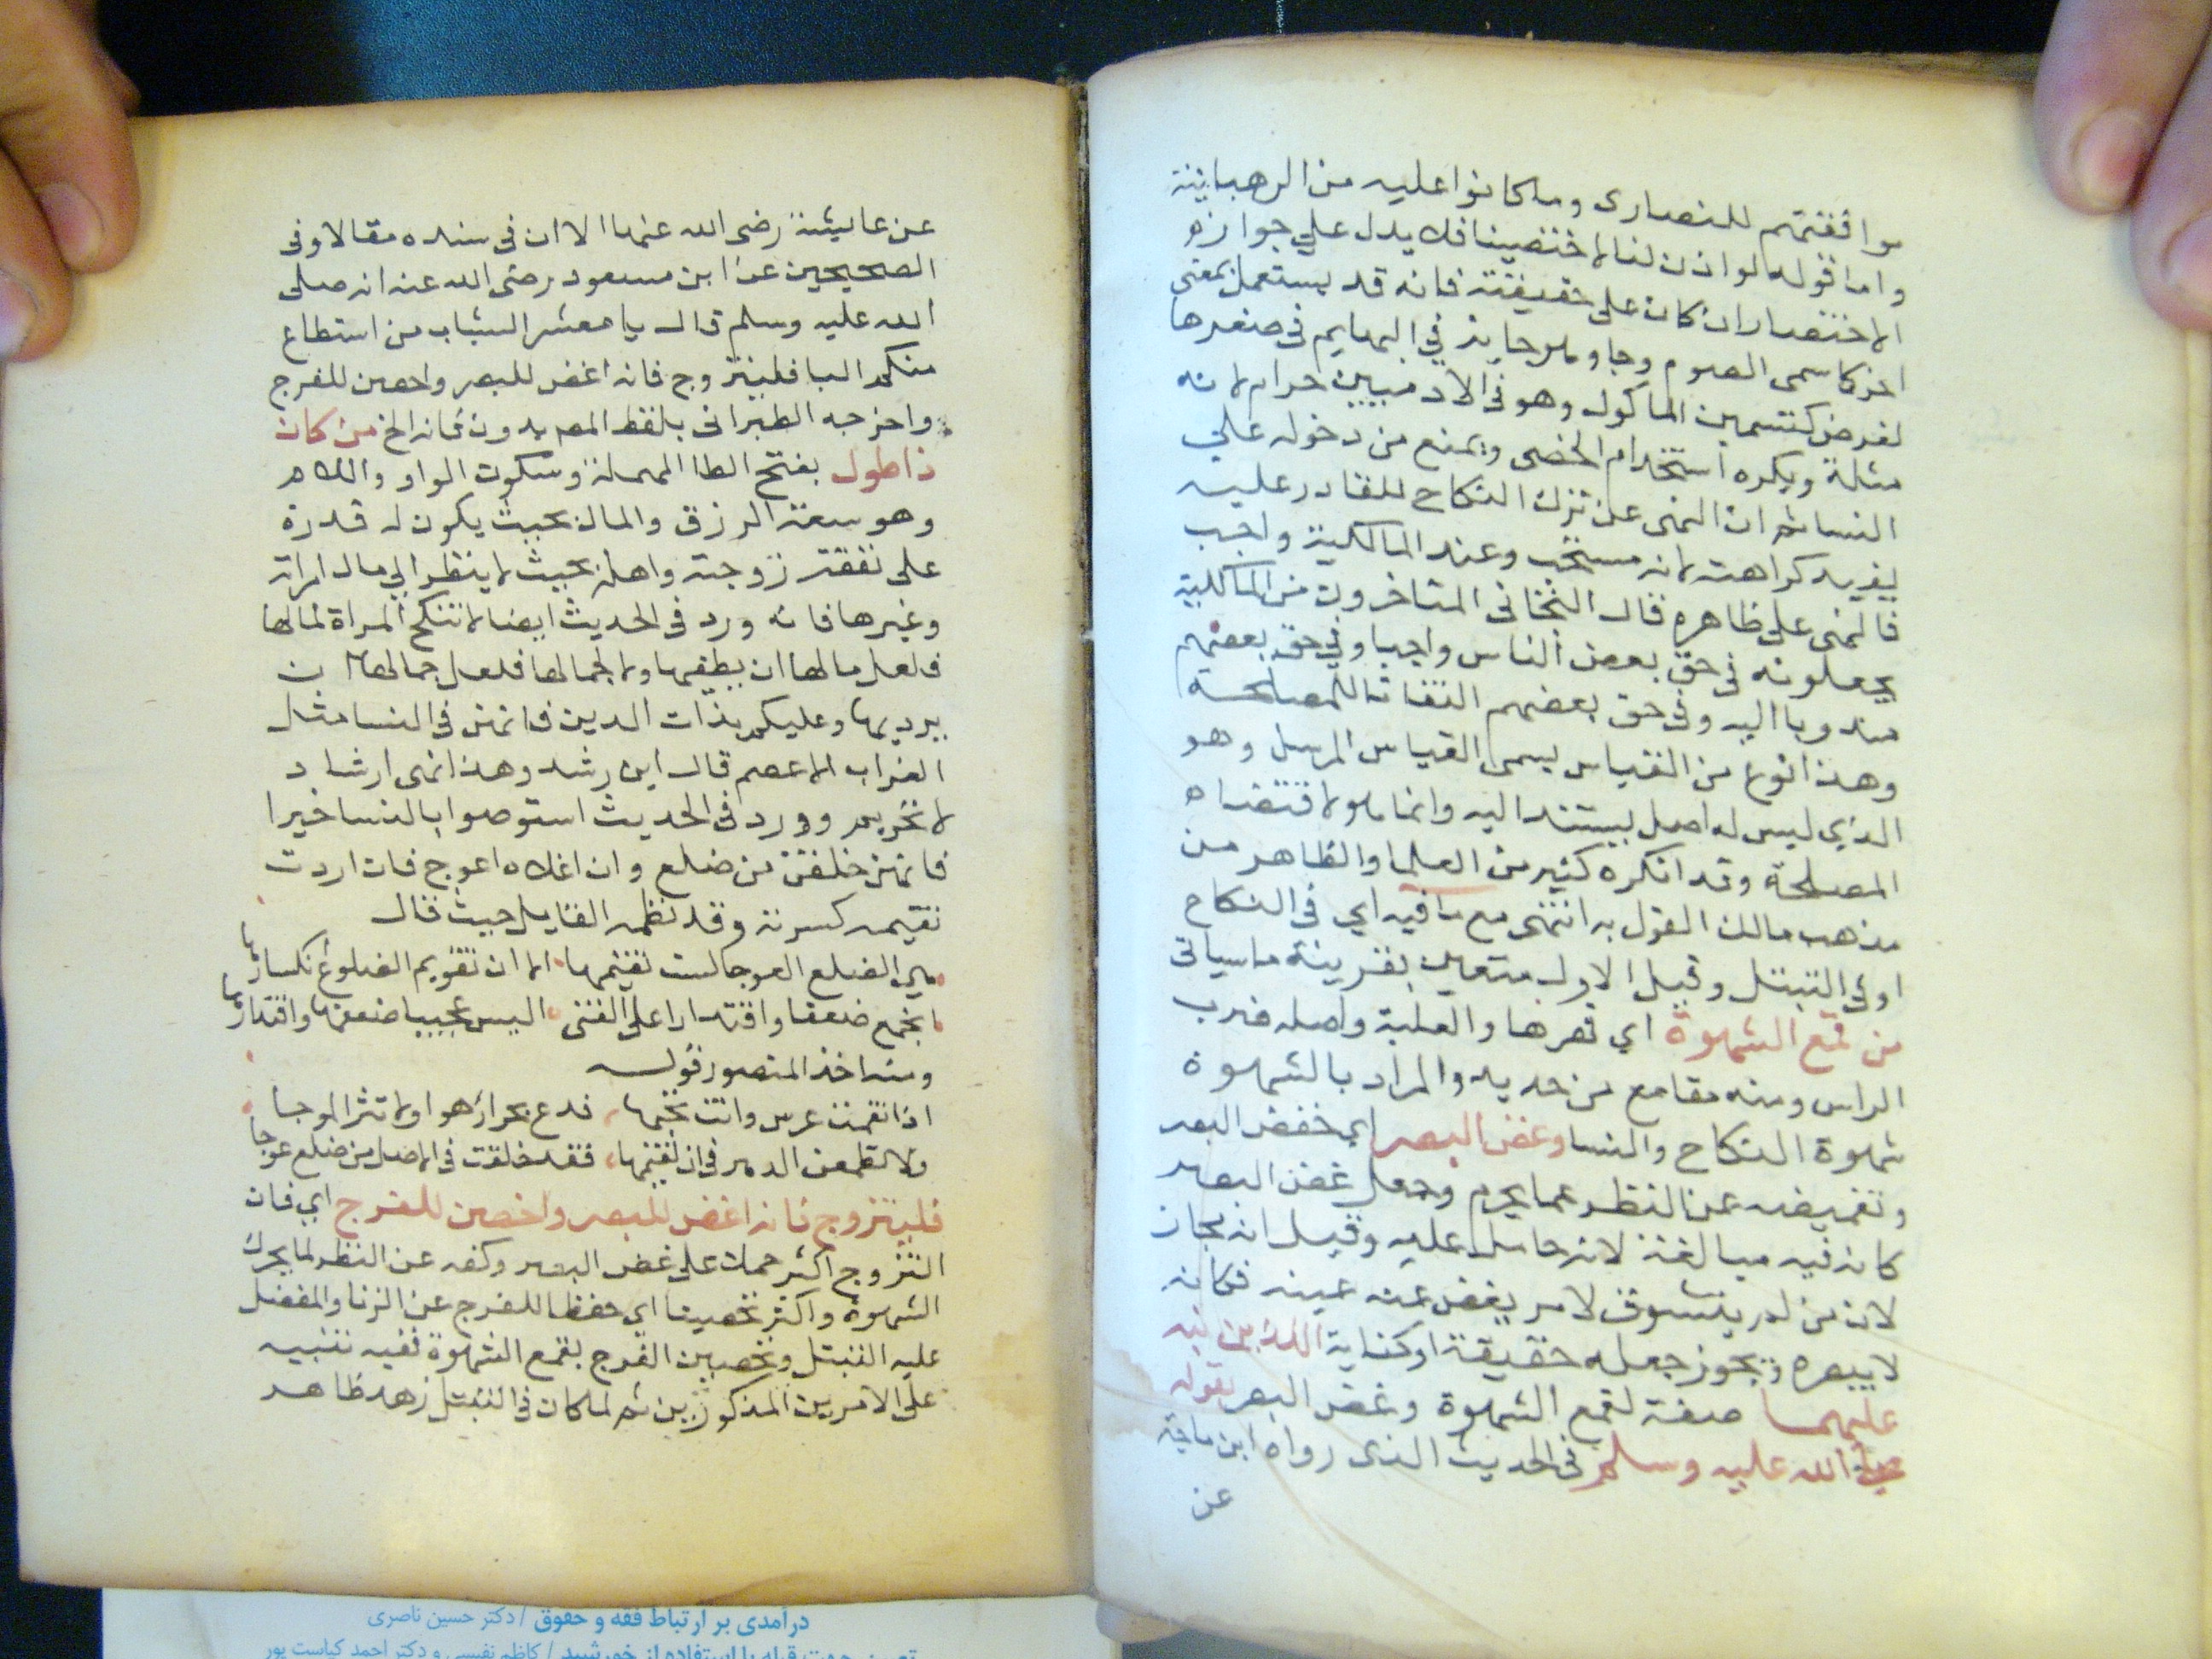 موافقتهم للنصارى وما كانوا عليه من الرهبانية
واما قوله لو اذن لنا لاختصينا فلا يدل علي جوازه
الاختصار ان كان على حقيقته فانه قد يستعمل بمعنى
اخر كاسمى الصوم وجاو هو جايز في البهايم في صغرها
لغرض كتسمين الماكول وهو في الادميين حرام لانه
مثلة ويكره استخدام الخصى ويمنع من دخوله علي
النسا ثم ان النهى عن ترك النكاح للقادر عليه
يفيد كراهته لانه مستحب وعند المالكية واجب
فالنهى على ظاهره قال المتاخرون من المالكية
يجعلونه في حق بعض الناس واجبا وفي حق بعضهم
مندوبا اليه وفي حق بعضهم التفاتا للمصلحة
وهذا نوع من القياس يسمى القياس المرسل وهو
الذي ليس له اصل يستند اليه وانما هو لاقتضاه
المصلحة وقد انكره كثير من العلما والظاهر من
مذهب مالك القول به انتهى مع ما فيه اي في النكاح
او في التبتل وقيل الاول متعين بقرينة ما سياتى
من قمع الشهوة اي قهرها والغلبة واصله ضرب
الراس ومنه مقامع من حديد والمراد بالشهوة
شهوة النكاح والنسا وغض البصر اي خفض البصر
وتغميضه عن النظر عما يحرم وجعل غض البصر
كانه فيه مبالغة لانه حامل عليه وقيل انه مجاز
لان من لم يتشوق لامر يغض عنه عينه فكانه
لا يبصره ويجوز جعله حقيقة او كناية اللذين نبه
عليهما صفة لقمع الشهوة وغض البصر بقوله
صلى الله عليه وسلم في الحديث الذى رواه ابن ماجة
عن
عن عايشة رضى الله عنها الا ان في سنده مقالا وفي
الصحيحين عن ابن مسعود رضى الله عنه انه صلى
الله عليه وسلم قال يا معشر الشباب من استطاع
منكم البا فليتزوج فانه اغض للبصر واحصن للفرج
واخرجه الطبرانى بلفظ المص بدون فانه الخ من كان
ذا طول بفتح الطا المهملة وسكون الواو واللام
وهو سعة الرزق والمال بحيث يكون له قدرة
على نفقة زوجته واهله بحيث لا ينظر الي مال امراته
وغيرها فانه ورد في الحديث ايضا لا تنكح المراة لمالها
فلعل مالها ان يطغيها ولا لجمالها فلعل جمالها ان
يرديها وعليكم بذات الدين فانهن في النسا مثل
الغراب الاعصم قال ابن رشد وهذا نهى ارشاد
لا تحريم وورد في الحديث استوصوا بالنسا خيرا
فانهن خلقن من ضلع وان اعلاه اعوج فان اردت
تقيمه كسرته وقد نظمه القايل حيث قال
هي الضلع العوجا لست تقيمها الا ان تقويم الضلوع انكسارها
اتجمع ضعفا واقتدارا على الفتى اليس عجيبا ضعفها واقتدارها
ومنه اخذ المنصور قوله
اذا نقمت عرس وانت تحبها فدع بحوازهوا ولا تثر الوجا
ولا تطمعن الدهر في ان تقيمها فقد خلقت في الاصل من ضلع عوجا
فليتزوج فانه اغض للبصر واحصن للفرج اي فان
التزوج اكثر حملا على غض البصر وكفه عن النظر لما يحرك
الشهوة واكثر تحصينا اي حفظا للفرج عن الزنا والمفضل
عليه التبتل وتحصين الفرج بقمع الشهوة ففيه تنبيه
على الامرين المذكورين ثم لما كان في التبتل زهد ظاهر
درآمدی بر ارتباط فقه و حقوق / دکتر حسین ناصری
تعیین جهت قبله با استفاده از خورشید / کاظم نفیسی و دکتر احمد کیاست پور